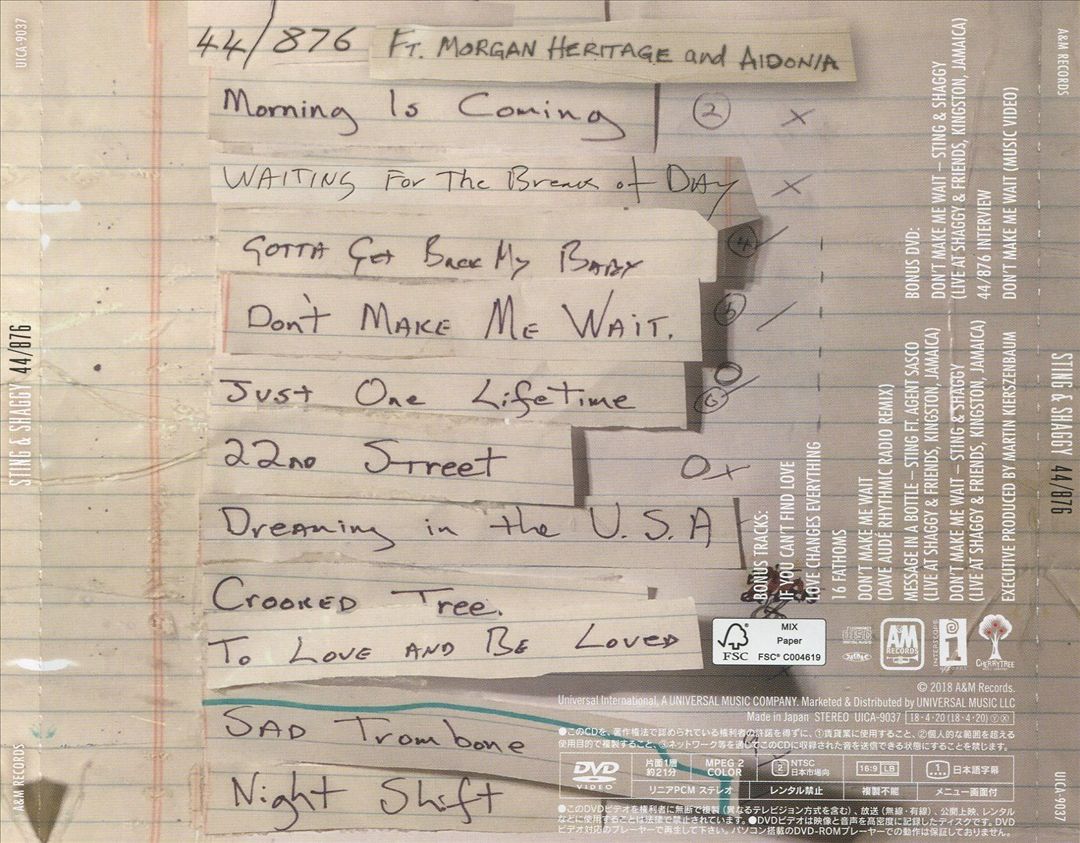 44/876 FT. MORGAN HERITAGE and AIDONIA
Morning Is Coming ② X
WAITING For The Break of DAY X
GOTTA Get Back My BABY ④
Don't MAKE Me WAIT.
Just One Lifetime ⑥
22ND Street
Dreaming in the U.S.A
CROOKED Tree.
To LOVE AND Be Loved
SAD Trombone
Night Shift
UICA-9037
STING & SHAGGY 44/876
A&M RECORDS
BONUS DVD:
DON'T MAKE ME WAIT – STING & SHAGGY
(LIVE AT SHAGGY & FRIENDS, KINGSTON, JAMAICA)
44/876 INTERVIEW
DON'T MAKE ME WAIT (MUSIC VIDEO)
BONUS TRACKS:
IF YOU CAN'T FIND LOVE
LOVE CHANGES EVERYTHING
16 FATHOMS
DON'T MAKE ME WAIT
(DAVE AUDÉ RHYTHMIC RADIO REMIX)
MESSAGE IN A BOTTLE – STING FT. AGENT SASCO
(LIVE AT SHAGGY & FRIENDS, KINGSTON, JAMAICA)
DON'T MAKE ME WAIT – STING & SHAGGY
(LIVE AT SHAGGY & FRIENDS, KINGSTON, JAMAICA)
EXECUTIVE PRODUCED BY MARTIN KIERSZENBAUM
A&M RECORDS
STING & SHAGGY 44/876
UICA-9037
FSC
MIX
Paper
FSC® C004619
A&M RECORDS
INTERSCOPE
CHERRYTREE
© 2018 A&M Records.
Universal International, A UNIVERSAL MUSIC COMPANY. Marketed & Distributed by UNIVERSAL MUSIC LLC
Made in Japan STEREO UICA-9037 18・4・20 (18・4・20) Ⓨ Ⓧ
●このCDを、著作権法で認められている権利者の許諾を得ずに、①賃貸業に使用すること、②個人的な範囲を超える
使用目的で複製すること、③ネットワーク等を通じてこのCDに収録された音を送信できる状態にすることを禁じます。
DVD VIDEO
片面1層 約21分
MPEG 2 COLOR
2 NTSC 日本市場向
16:9 LB
1 日本語字幕
リニアPCM ステレオ
レンタル禁止
複製不能
メニュー画面付
●このDVDビデオを権利者に無断で複製(異なるテレビジョン方式を含む)、放送(無線・有線)、公開上映、レンタル
などに使用することは法律で禁止されています。●DVDビデオは映像と音声を高密度に記録したディスクです。DVD
ビデオ対応のプレーヤーで再生して下さい。パソコン搭載のDVD-ROMプレーヤーでの動作は保証しておりません。